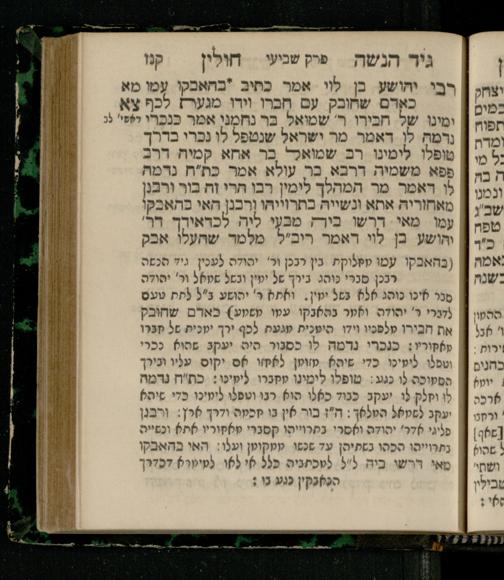 גיד הנשה פרק שביעי חולין קנז
רבי יהושע בן לוי אמר כתיב *בהאבקו עמו מא
כאדם שחובק עם חברו וידו מגעת לכף צא
ימינו של חבירו ר׳ שמואל בר נחמני אמר כנכרי
נדמה לו דאמר מר ישראל שנטפל לו נכרי בדרך
טופלו לימינו רב שמואל בר אחא קמיה דרב
פפא משמיה דרבא בר עולא אמר כת״ח נדמה
לו דאמר מר המהלך לימין רבו הרי זה בור ורבנן
מאחוריה אתא ונשייה בתרוייהו ורבנן האי בהאבקו
עמו מאי דרשו ביה מבעי ליה לכדאידך דר׳
יהושע בן לוי דאמר ריב״ל מלמד שהעלו אבק
(בהאבקו עמו מחלוקת בין רבנן ור׳ יהודה לענין גיד הנשה
רבנן סברי נוהג בירך של ימין ובשל שמאל ור׳ יהודה
סבר אינו נוהג אלא בשל ימין. ואתא ר׳ יהושע ב״ל לתת טעם
לדברי ר׳ יהודה ואמר בהאבקו עמו משמע) כאדם שחובק
את חבירו מלפניו וידו הימנית מגעת לכף ירך ימנית של חברו
מאחוריו: כנכרי נדמה לו כסבור היה יעקב שהוא נכרי
וטפלו לימינו כדי שיהא מזומן לאחזו אם יקום עליו ובירך
הסמוכה לו נגע: טופלו לימינו מחברו לימינו: כת״ח נדמה
לו וחלק לו יעקב כבוד כאלו הוא רבו וטפלו לימינו כדי שיהא
יעקב לשמאל המלאך: ה״ז בור אין בו חכמה ודרך ארץ: ורבנן
פליגי אדר׳ יהודה ואסרי בתרוייהו קסברי מאחוריו אתא ונשייה
בתרוייהו הכהו בשתיהן עד שנשו ממקומן ועלו: האי בהאבקו
מאי דרשו ביה ל״ל למכתביה כלל אי לאו למימרא דכדרך
הנאבקין נגע בו: